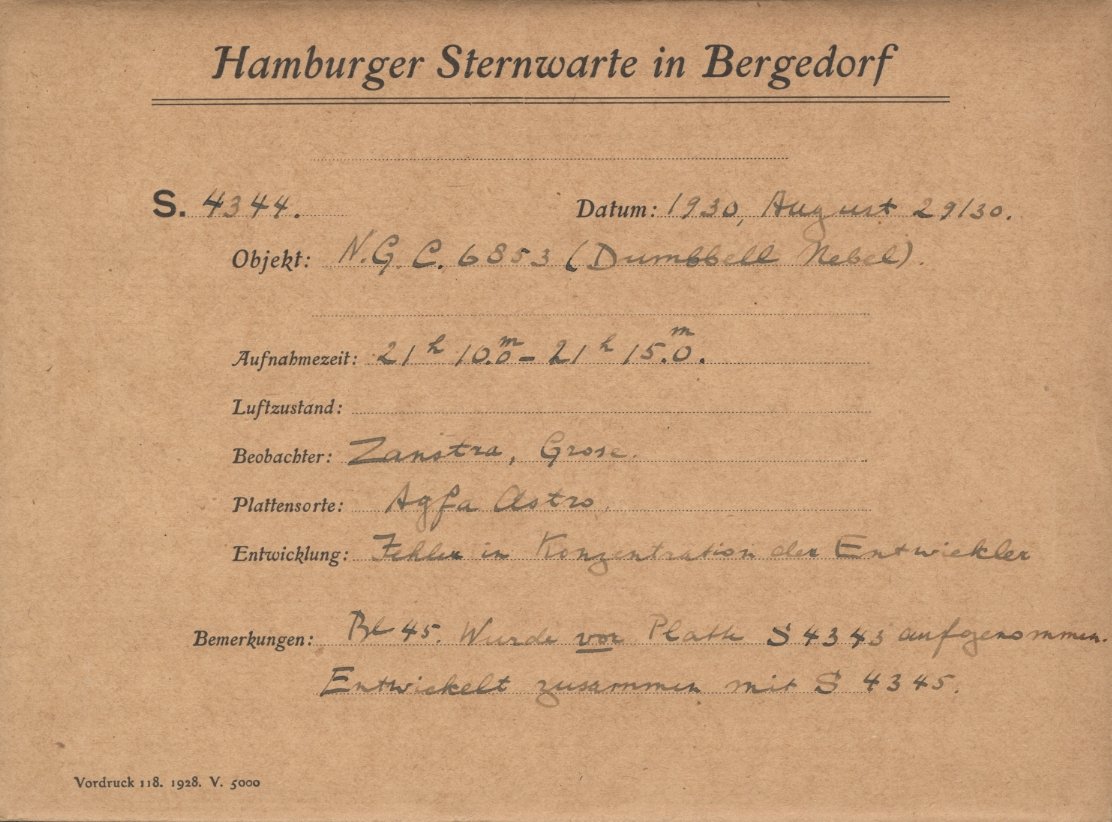 Hamburger Sternwarte in Bergedorf
S. 4344. Datum: 1930, August 29/30.
Objekt: N.G.C. 6853 (Dumbbell Nebel).
Aufnahmezeit: 21h 10.0m – 21h 15.0m.
Luftzustand:
Beobachter: Zanstra, Grose.
Plattensorte: Agfa Astro.
Entwicklung: Fehler in Konzentration der Entwickler
Bemerkungen: Bl 45. Wurde vor Platte S 4343 aufgenommen.
Entwickelt zusammen mit S 4345.
Vordruck 118. 1928. V. 5000